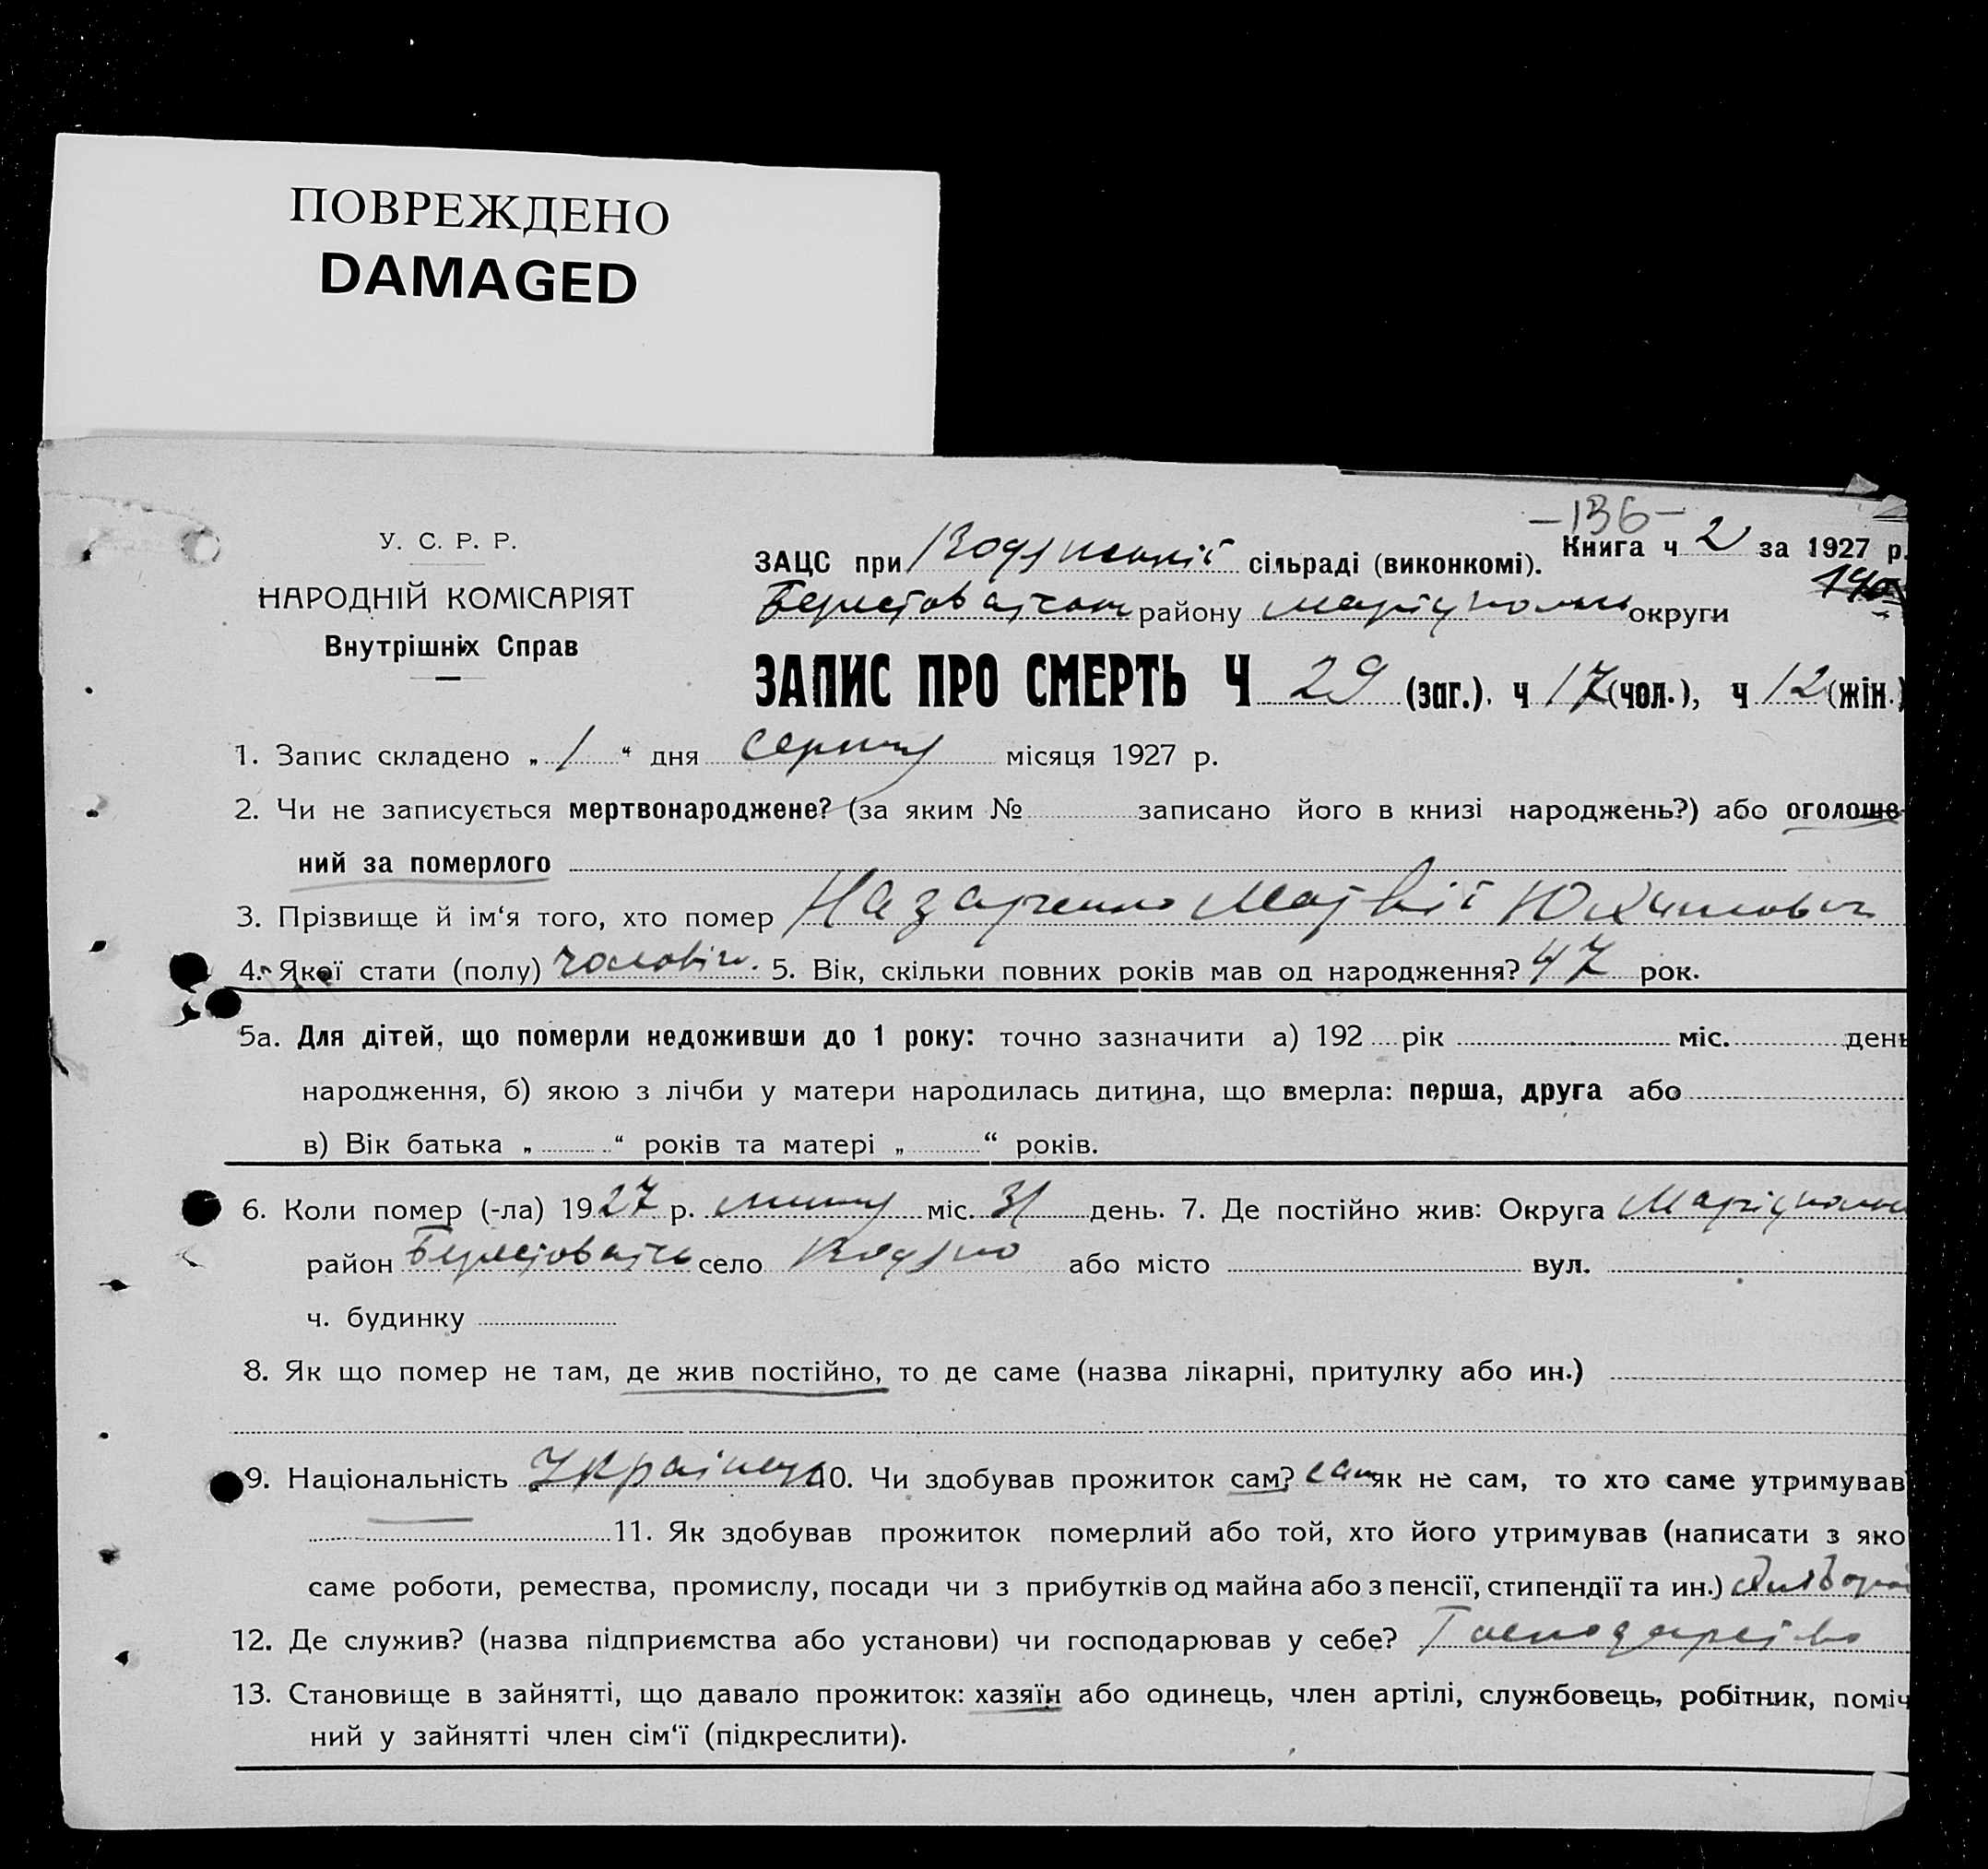 ПОВРЕЖДЕНО
DAMAGED
-136-
У. С. Р. Р.
НАРОДНІЙ КОМІСАРІЯТ
Внутрішніх Справ
Книга ч 2 за 1927 р.
ЗАЦС при сільраді (виконкомі).
району округи
ЗАПИС ПРО СМЕРТЬ Ч 29 (заг.). ч 17 (чол.), ч 12 (жін.)
1. Запис складено „ 1 “ дня серпня місяця 1927 р.
2. Чи не записується мертвонароджене? (за яким № записано його в книзі народжень?) або оголоше-
ний за померлого
3. Прізвище й ім‘я того, хто помер Назаренко Матвій
4. Якої стати (полу) 5. Вік, скільки повних років мав од народження? 47 рок.
5а. Для дітей, що померли недоживши до 1 року: точно зазначити а) 192 рік міс. день
народження, б) якою з лічби у матери народилась дитина, що вмерла: перша, друга або
в) Вік батька „ “ років та матері „ “ років.
6. Коли помер (-ла) 1927 р. липня міс. 31 день. 7. Де постійно жив: Округа
район село або місто вул.
ч. будинку
8. Як що помер не там, де жив постійно, то де саме (назва лікарні, притулку або ин.)
9. Національність Українець 10. Чи здобував прожиток сам? сам як не сам, то хто саме утримував
11. Як здобував прожиток померлий або той, хто його утримував (написати з яко
саме роботи, ремества, промислу, посади чи з прибутків од майна або з пенсії, стипендії та ин.)
12. Де служив? (назва підприємства або установи) чи господарював у себе? Господарство
13. Становище в зайнятті, що давало прожиток: хазяїн або одинець, член артілі, службовець, робітник, поміч
ний у зайнятті член сім‘ї (підкреслити).